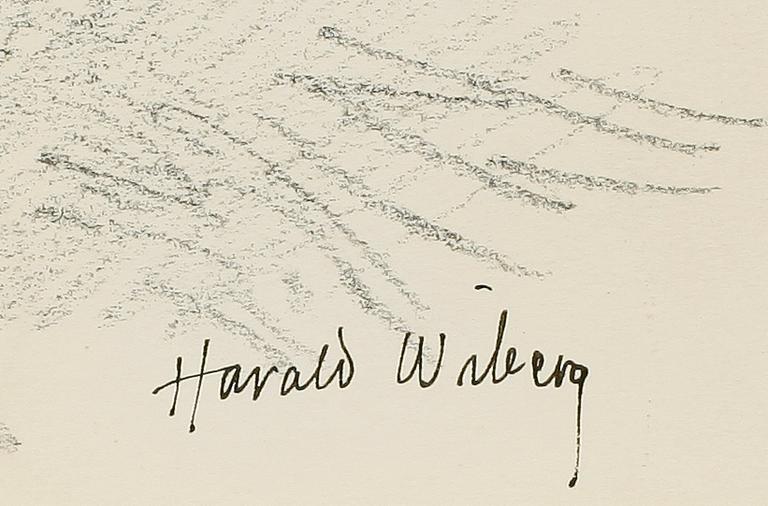 Harald Wiberg